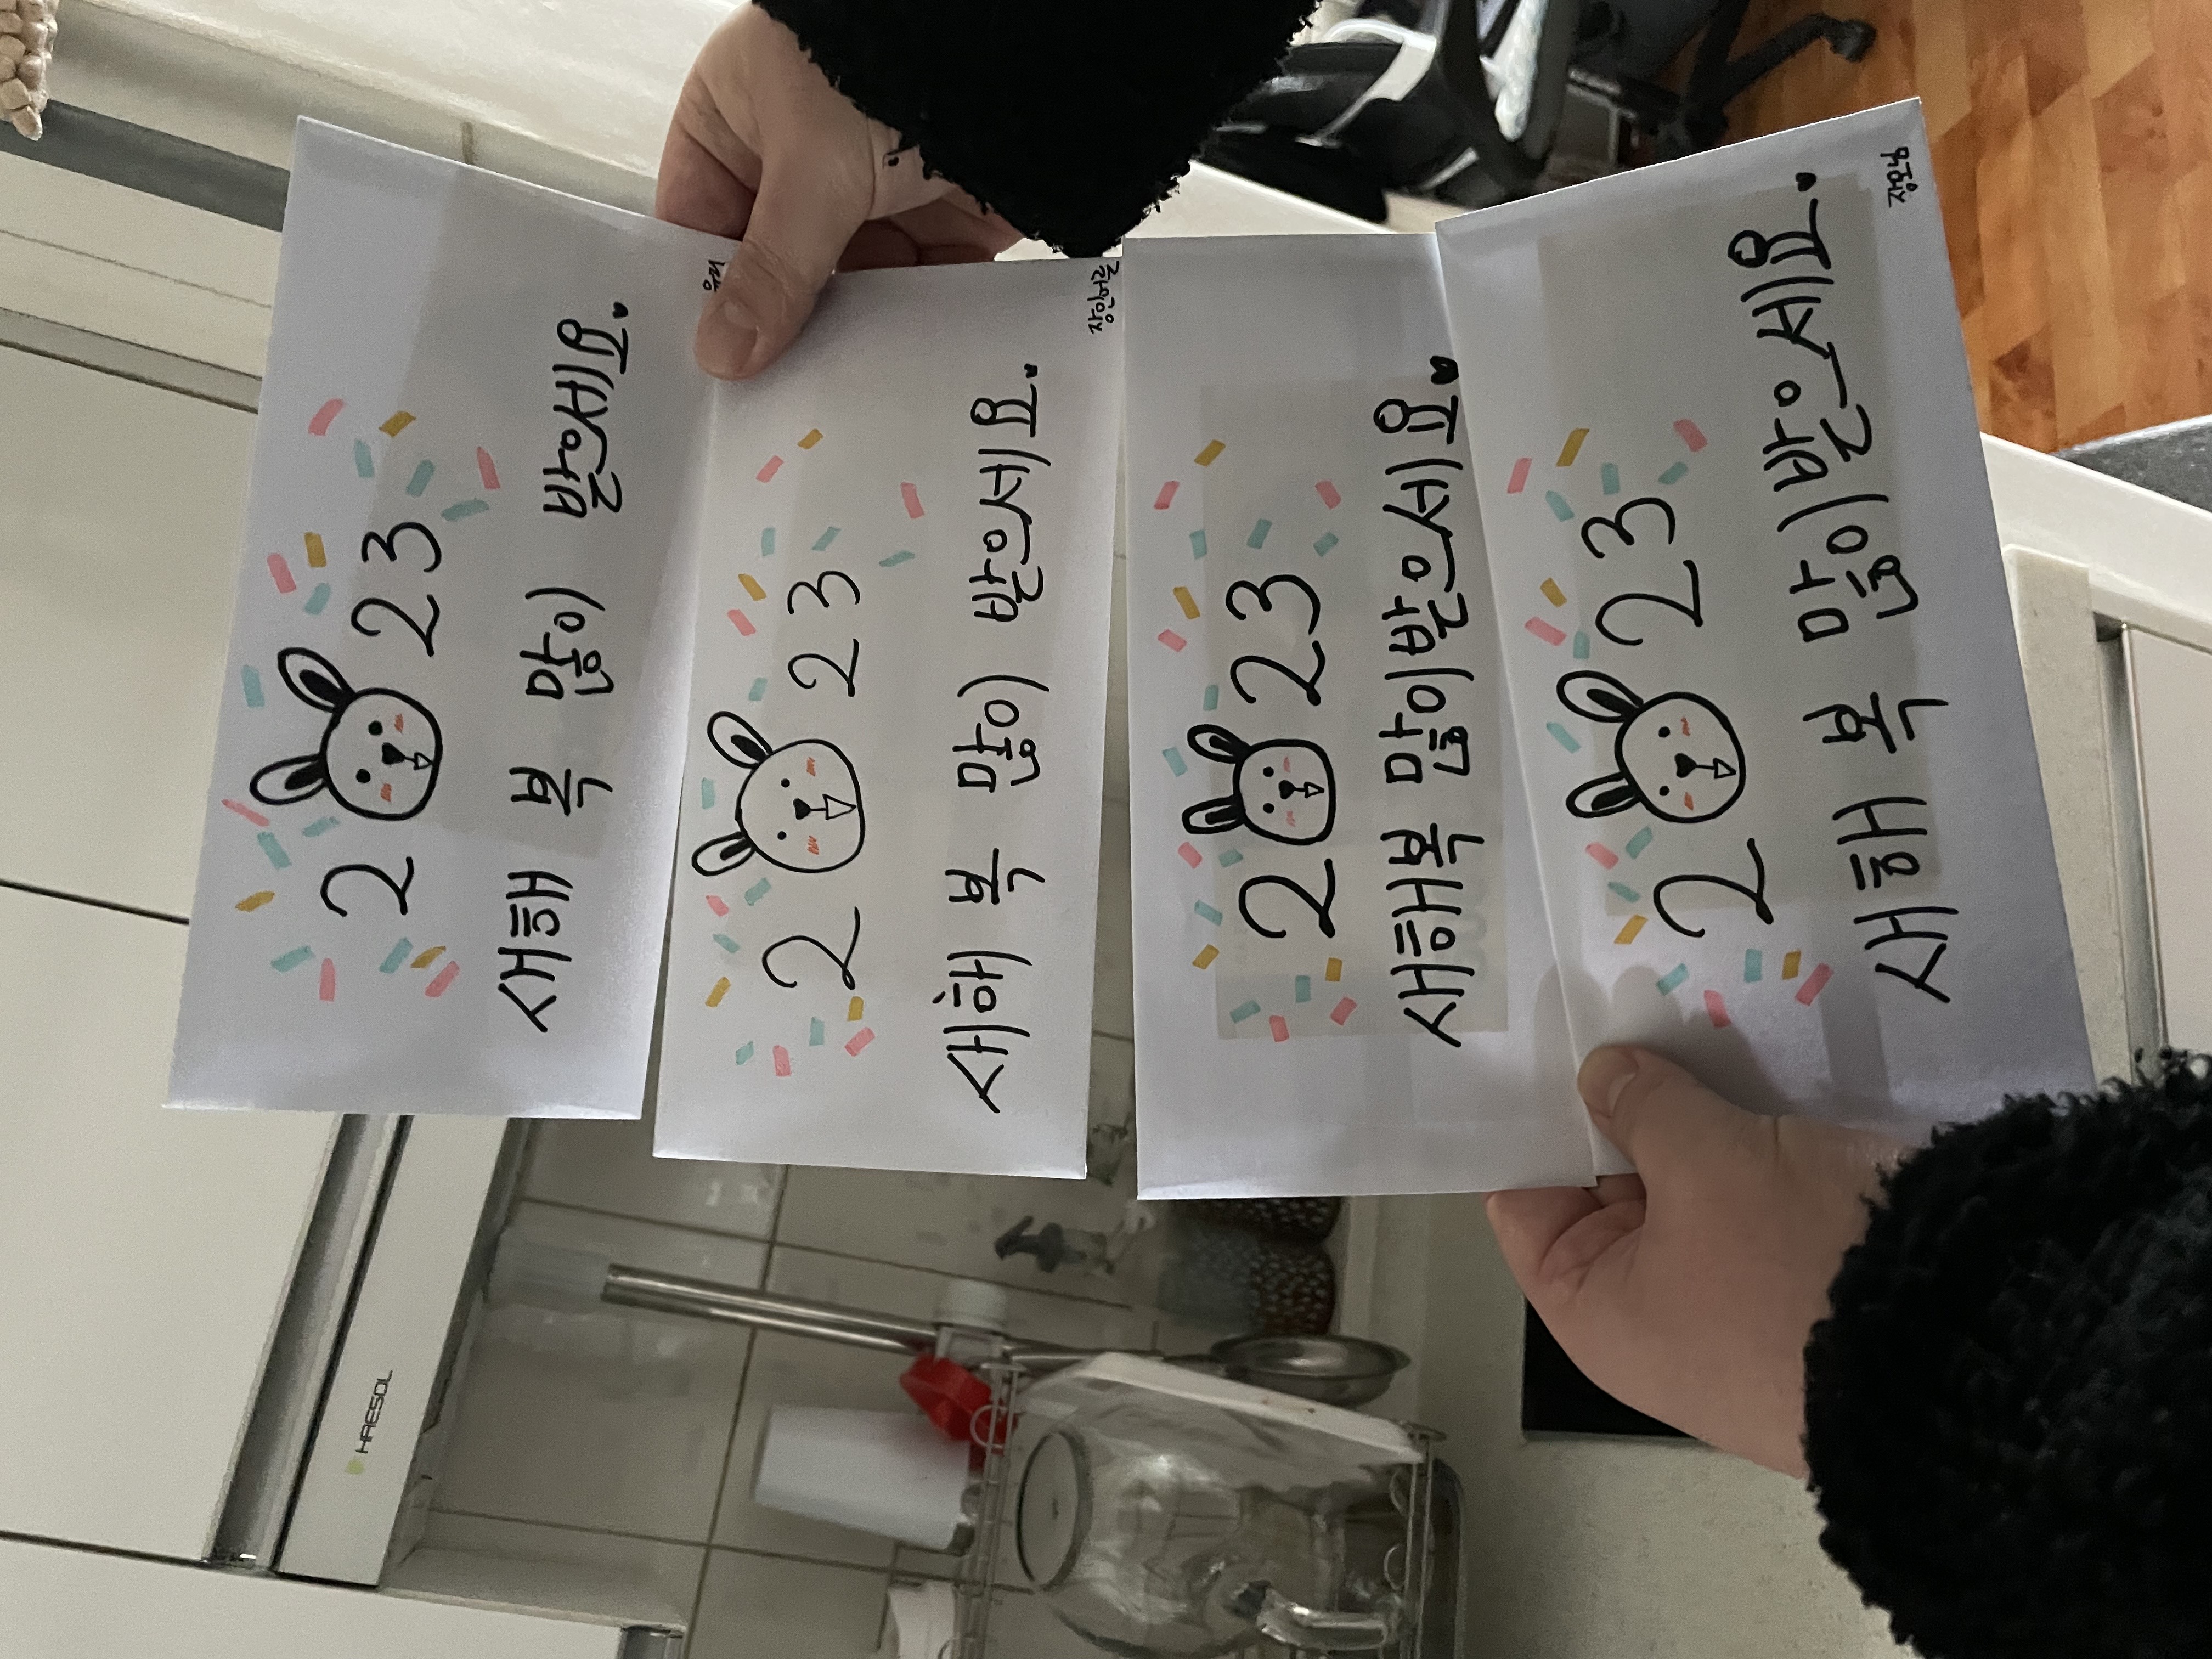 HAESOL
2 23
새해 복 많이 받으세요.
2 23
새해 복 많이 받으세요.
장인어른
2 23
새해복 많이받으세요.
2 23
새해 복 많이받으세요.
장모님